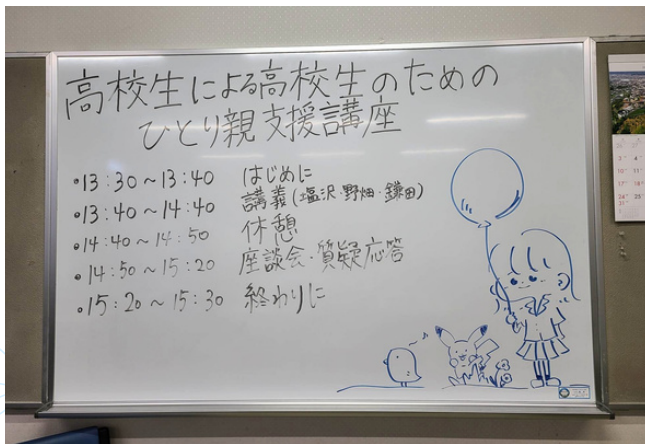 高校生による高校生のための
ひとり親支援講座
•13:30～13:40 はじめに
•13:40～14:40 講義(塩沢・野畑・鎌田)
•14:40～14:50 休憩
•14:50～15:20 座談会・質疑応答
•15:20～15:30 終わりに